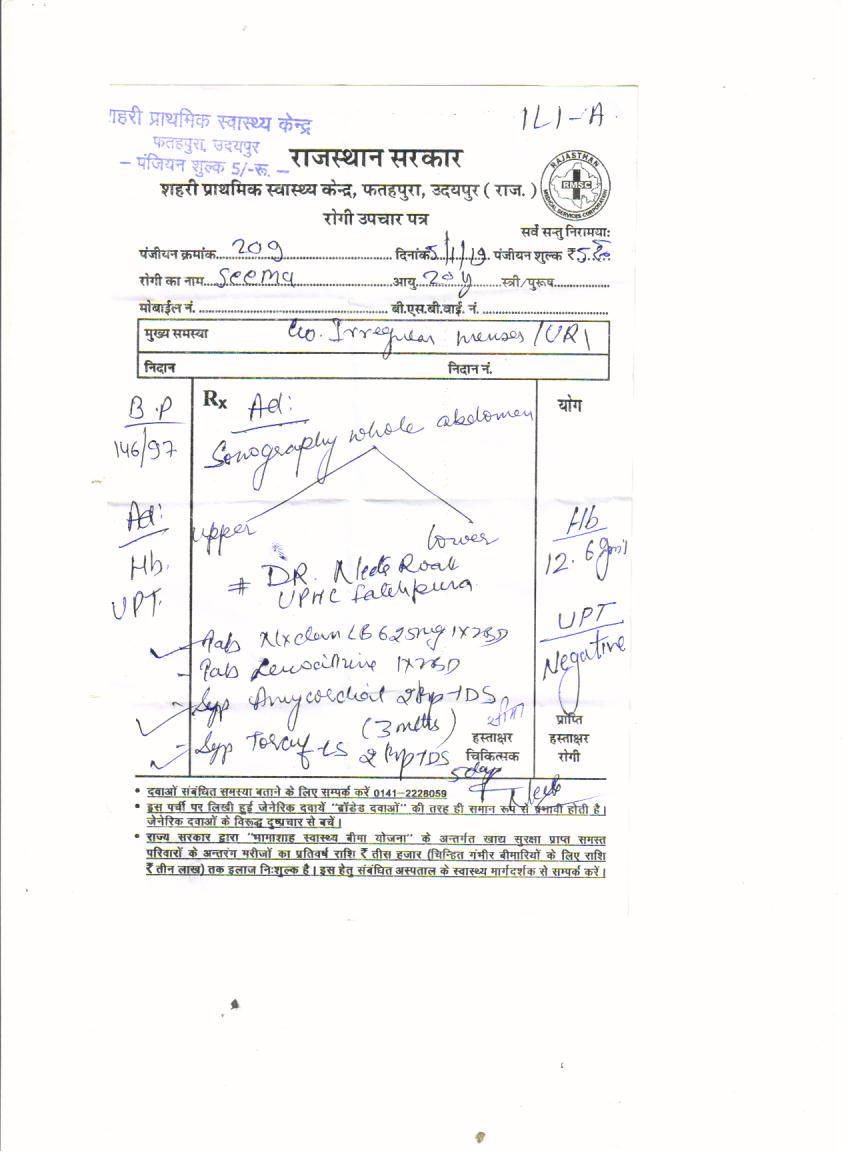 शहरी प्राथमिक स्वास्थ्य केन्द्र
फतहपुरा, उदयपुर
– पंजियन शुल्क 5/-रू. –
1L1-A
राजस्थान सरकार
RAJASTHAN
RMSC
MEDICAL SERVICES CORPORATION
शहरी प्राथमिक स्वास्थ्य केन्द्र, फतहपुरा, उदयपुर ( राज. )
रोगी उपचार पत्र
सर्वे सन्तु निरामयाः
पंजीयन क्रमांक 209 दिनांक 5/1/19 पंजीयन शुल्क ₹ 5
रोगी का नाम Seema आयु 20 y स्त्री/पुरूष
मोबाईल नं. बी.एस.बी.वाई. नं.
मुख्य समस्या c/o. Irregular menses /URI
निदान निदान नं.
Rx Ad: योग
B.P
146/97
Sonography whole abdomen
upper lower
Ad:
Hb.
UPT.
Hb
12.6 gm
# DR.
UPHC fatehpura
UPT
Negative
Tab 625mg 1x2BD
Tab 1x2BD
Syp TDS
(3 mths)
सीमा
Syp LS TDS
5 day
हस्ताक्षर
चिकित्सक
प्राप्ति
हस्ताक्षर
रोगी
• दवाओं संबंधित समस्या बताने के लिए सम्पर्क करें 0141–2228059
• इस पर्ची पर लिखी हुई जेनेरिक दवायें "ब्रांडेड दवाओं" की तरह ही समान रूप से प्रभावी होती है।
जेनेरिक दवाओं के विरूद्ध दुष्प्रचार से बचें।
• राज्य सरकार द्वारा "भामाशाह स्वास्थ्य बीमा योजना" के अन्तर्गत खाद्य सुरक्षा प्राप्त समस्त
परिवारों के अन्तरंग मरीजों का प्रतिवर्ष राशि ₹ तीस हजार (चिन्हित गंभीर बीमारियों के लिए राशि
₹ तीन लाख) तक इलाज निःशुल्क है। इस हेतु संबंधित अस्पताल के स्वास्थ्य मार्गदर्शक से सम्पर्क करें।